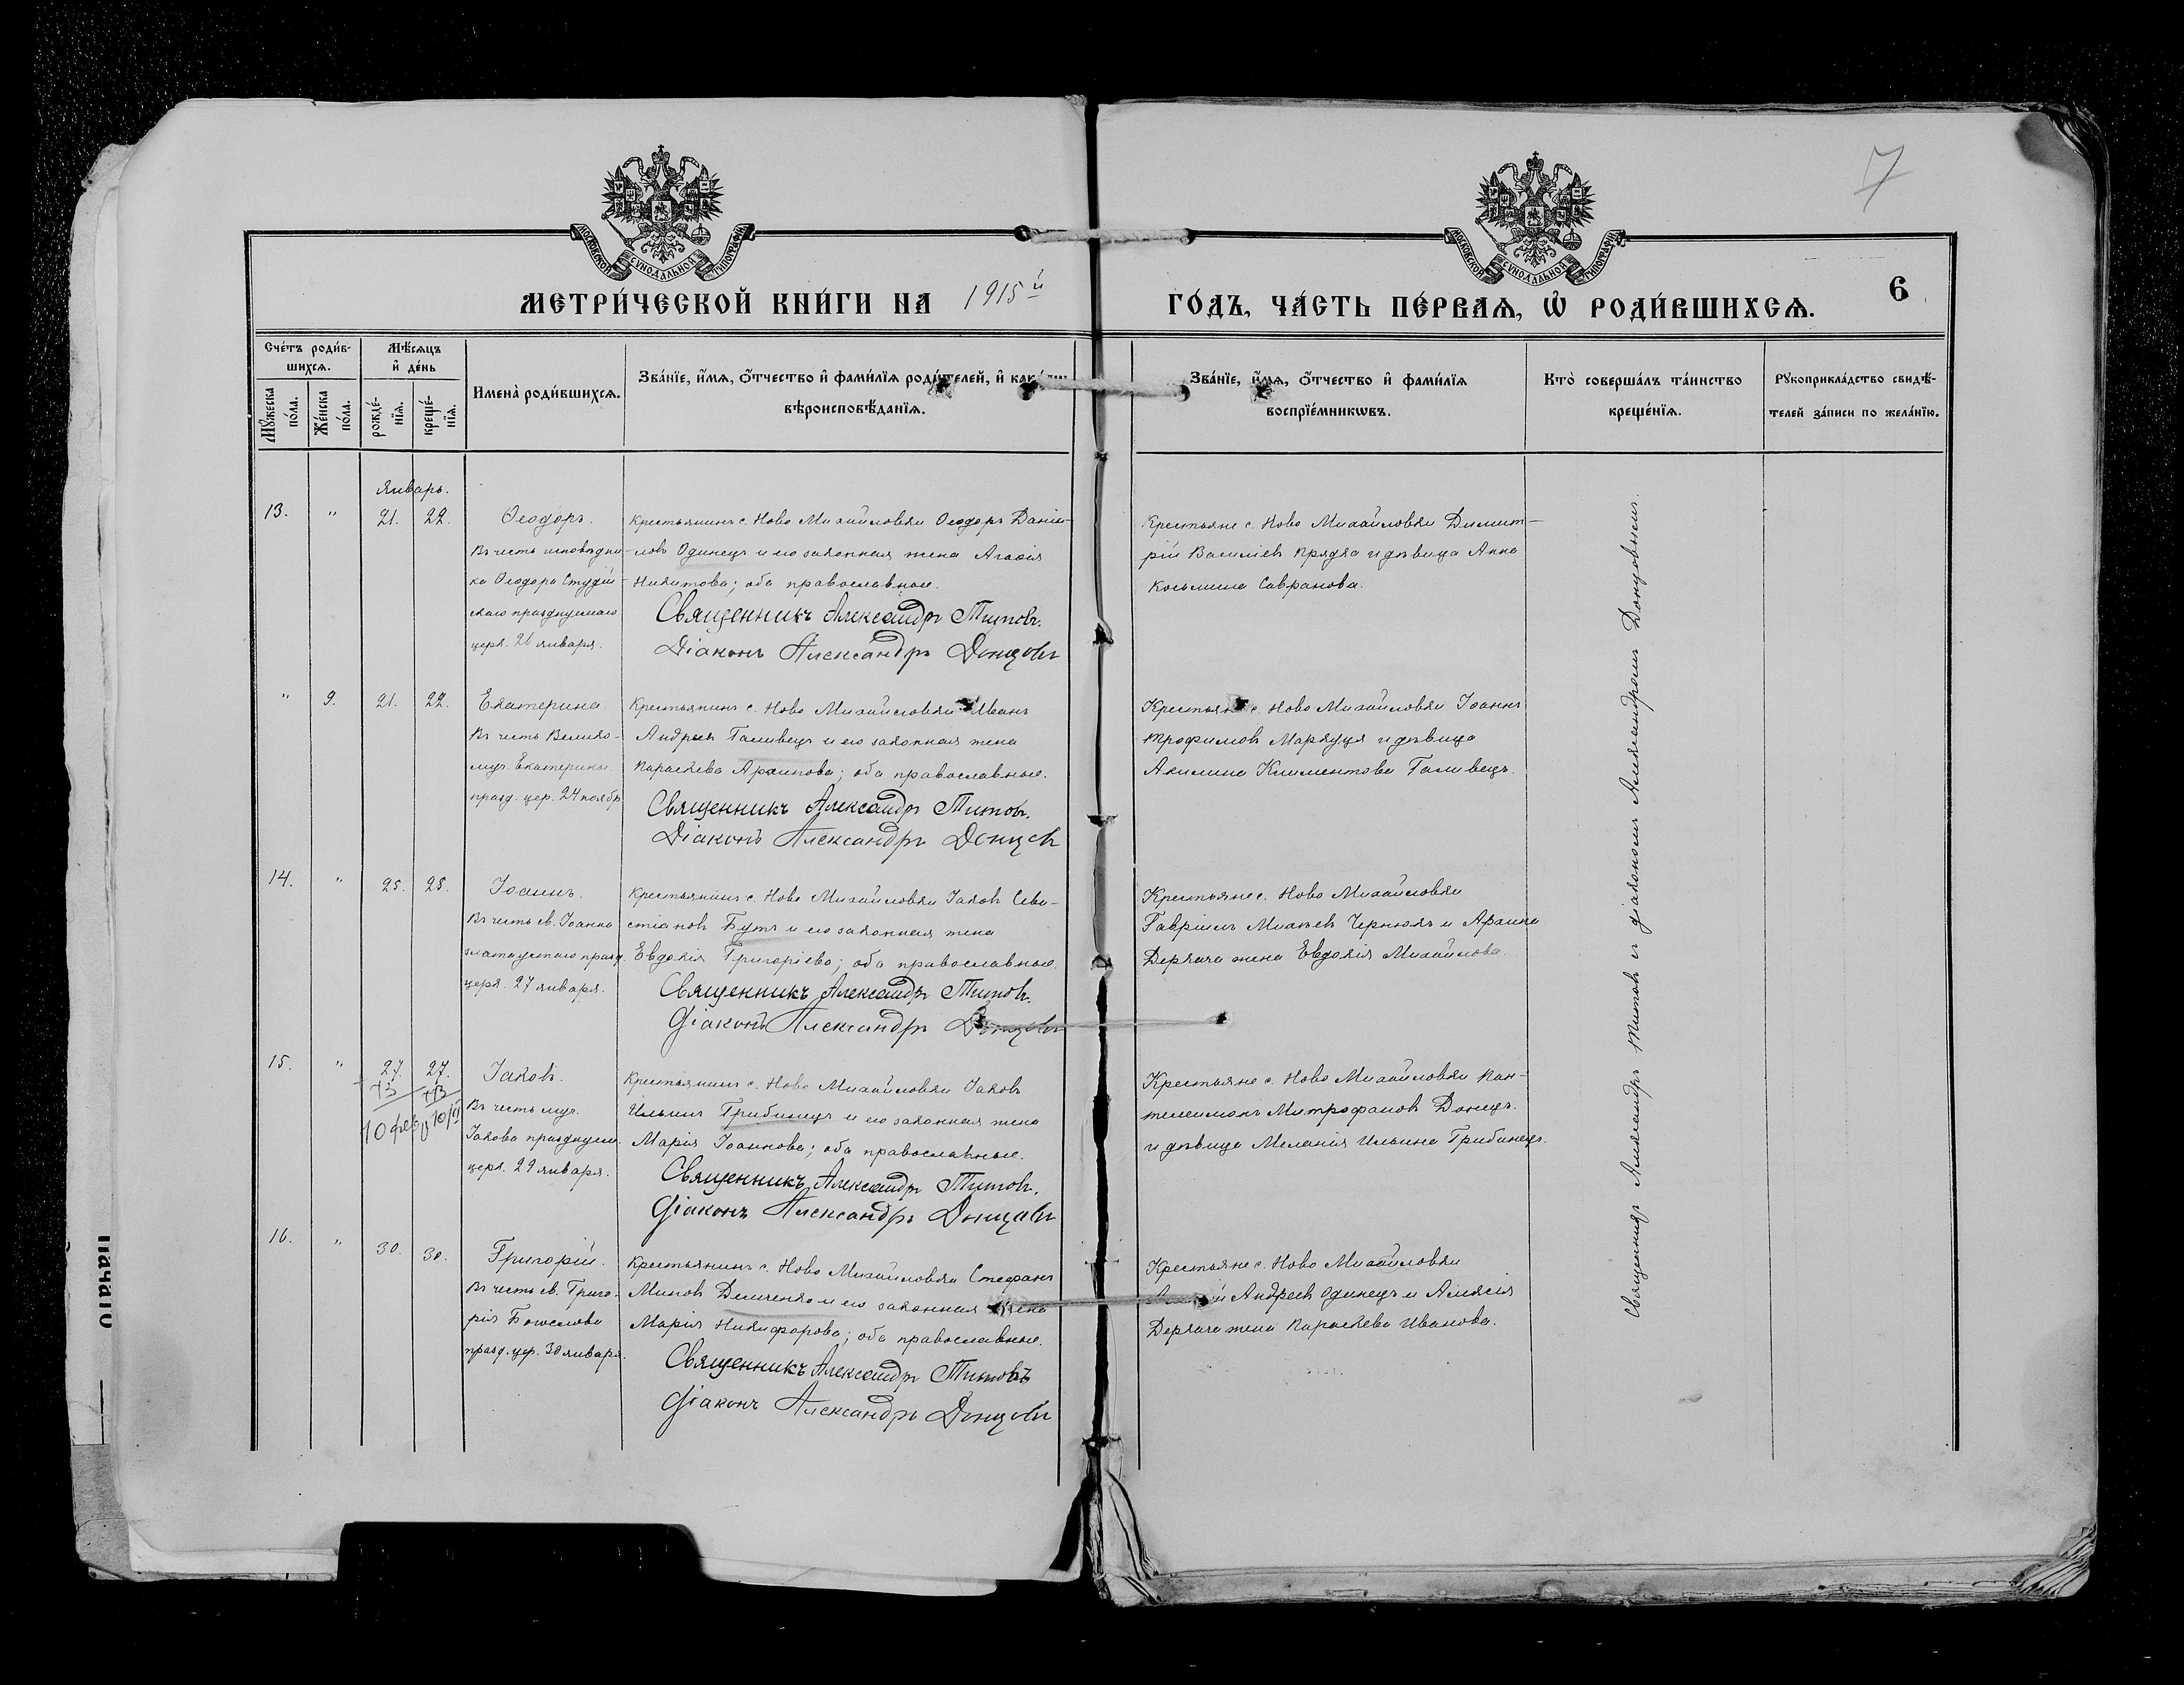 7
МОСКОВСКОЙ СѴНОДАЛЬНОЙ ТИПОГРАФІИ
МОСКОВСКОЙ СѴНОДАЛЬНОЙ ТИПОГРАФІИ
МЕТРИ́ЧЕСКОЙ КНИ́ГИ НА 1915й ГО́ДЪ, ЧА́СТЬ ПЕ́РВАѦ, Ѡ РОДИ́ВШИХСѦ.
6
Сче́тъ роди́в-
шихсѧ.
Мꙋ́жеска
по́ла.
Же́нска
по́ла.
Мѣ́сѧцъ
и҆ де́нь
рожде́-
нїѧ.
креще́-
нїѧ.
Имена̀ роди́вшихсѧ.
Зва́нїе, и҆́мѧ, ѻ҆́тчество и҆ фами́лїѧ роди́телей, и҆
вѣроисповѣ́данїѧ.
Зва́нїе, и҆́мѧ, ѻ҆́тчество и҆ фами́лїѧ
воспрїе́мникѡвъ.
Кто̀ соверша́лъ та́инство
креще́нїѧ.
Рꙋкоприкла́дство свидѣ́-
телей за́писи по жела́нїю.
Январь.
13.
"
21.
22.
Ѳеодоръ.
Въ честь исповѣдни-
ка Ѳеодора Студій-
скаго празднуемаго
церк. 26 января.
Крестьянинъ с. Ново Михайловки Ѳеодоръ Даніи-
ловъ Одинецъ и его законная жена Агаѳія
Никитова; оба православные.
Священникъ Александръ Титовъ.
Діаконъ Александръ Донцовъ
Крестьяне с. Ново Михайловки Димит-
рій Василіевъ Прядка и дѣвица Анна
Косьмина Савранова.
"
9.
21.
22.
Екатерина.
Въ честь Велико-
муч. Екатерины.
празд. цер. 24 ноябр.
Крестьянинъ с. Ново Михайловки Иванъ
Андреевъ Галивецъ и его законная жена
Параскева Архипова; оба православные.
Священникъ Александръ Титовъ.
Діаконъ Александръ Донцовъ
Крестьяне с. Ново Михайловки Іоаннъ
Трофимовъ Маркуця и дѣвица
Акилина Климентова Галивецъ.
14.
"
25.
25.
Іоаннъ.
Въ честь св. Іоанна
златоустаго празд.
церк. 27 января.
Крестьянинъ с. Ново Михайловки Іаковъ Сева-
стіановъ Бутъ и его законная жена
Евдокія Григоріева; оба православные.
Священникъ Александръ Титовъ.
Діаконъ Александръ Донцовъ
Крестьяне с. Ново Михайловки
Гавріилъ Михѣевъ Чернюкъ и
Деркача жена Евдокія Михайлова.
15.
"
27.
27.
+13
+13
10 фев
10/II
Іаковъ.
Въ честь муч.
Іакова празднуем.
церк. 29 января.
Крестьянинъ с. Ново Михайловки Іаковъ
Ильинъ Грибинецъ и его законная жена
Марія Іоаннова; оба православные.
Священникъ Александръ Титовъ.
Діаконъ Александръ Донцовъ
Крестьяне с. Ново Михайловки Пан-
телеимонъ Митрофановъ Донецъ.
и дѣвица Меланія Ильина Грибинецъ.
16.
"
30.
30.
Григорій.
Въ честь св. Григо-
рія Богослова
празд. цер. 30 января.
Крестьянинъ с. Ново Михайловки Стефанъ
Миновъ Демченко и его законная жена
Марія Никифорова; оба православные.
Священникъ Александръ Титовъ
Діаконъ Александръ Донцовъ
Крестьяне с. Ново Михайловки
Андреевъ Одинецъ и Алексія
Деркача жена Параскева Иванова.
Священникъ Александръ Титовъ съ діакономъ Александромъ Донцовымъ.
Начато